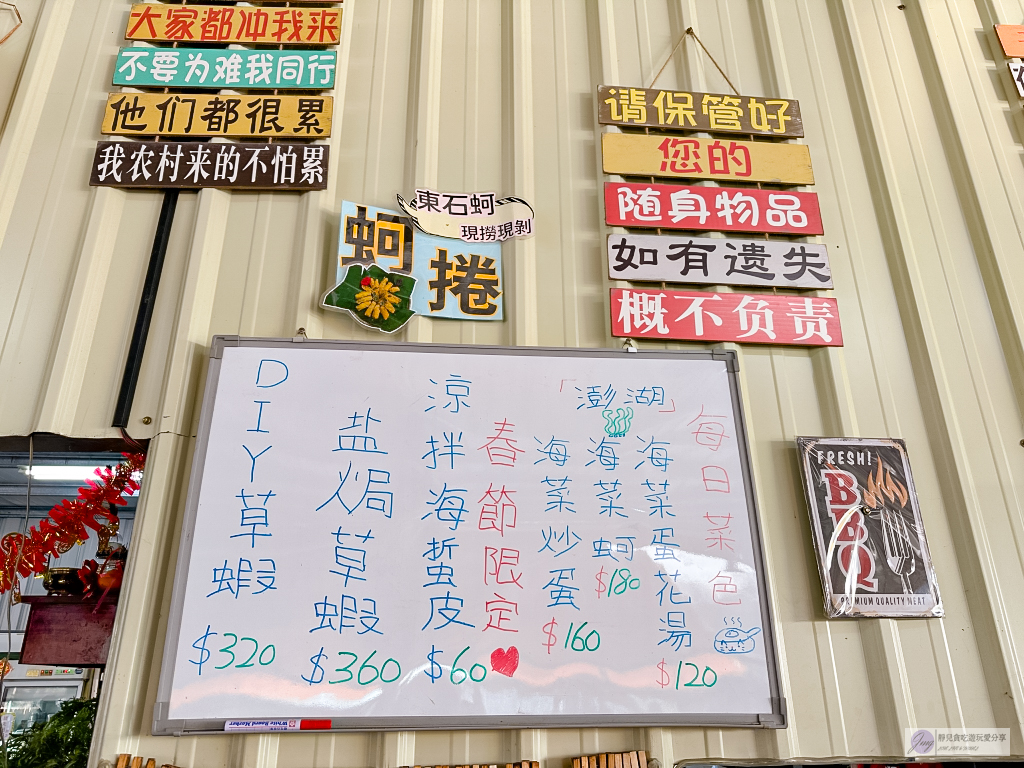 大家都冲我来
不要为难我同行
他们都很累
我农村来的不怕累
请保管好
您的
随身物品
如有遗失
概不负责
東石蚵
現撈現剝
蚵捲
每日菜色
「澎湖」
海菜蛋花湯
$120
海菜蚵
$180
海菜炒蛋
$160
春節限定
涼拌海蜇皮
$60
盐焗草蝦
$360
DIY草蝦
$320
White Board Marker
FRESH!
BBQ
PREMIUM QUALITY MEAT
靜兒貪吃遊玩愛分享